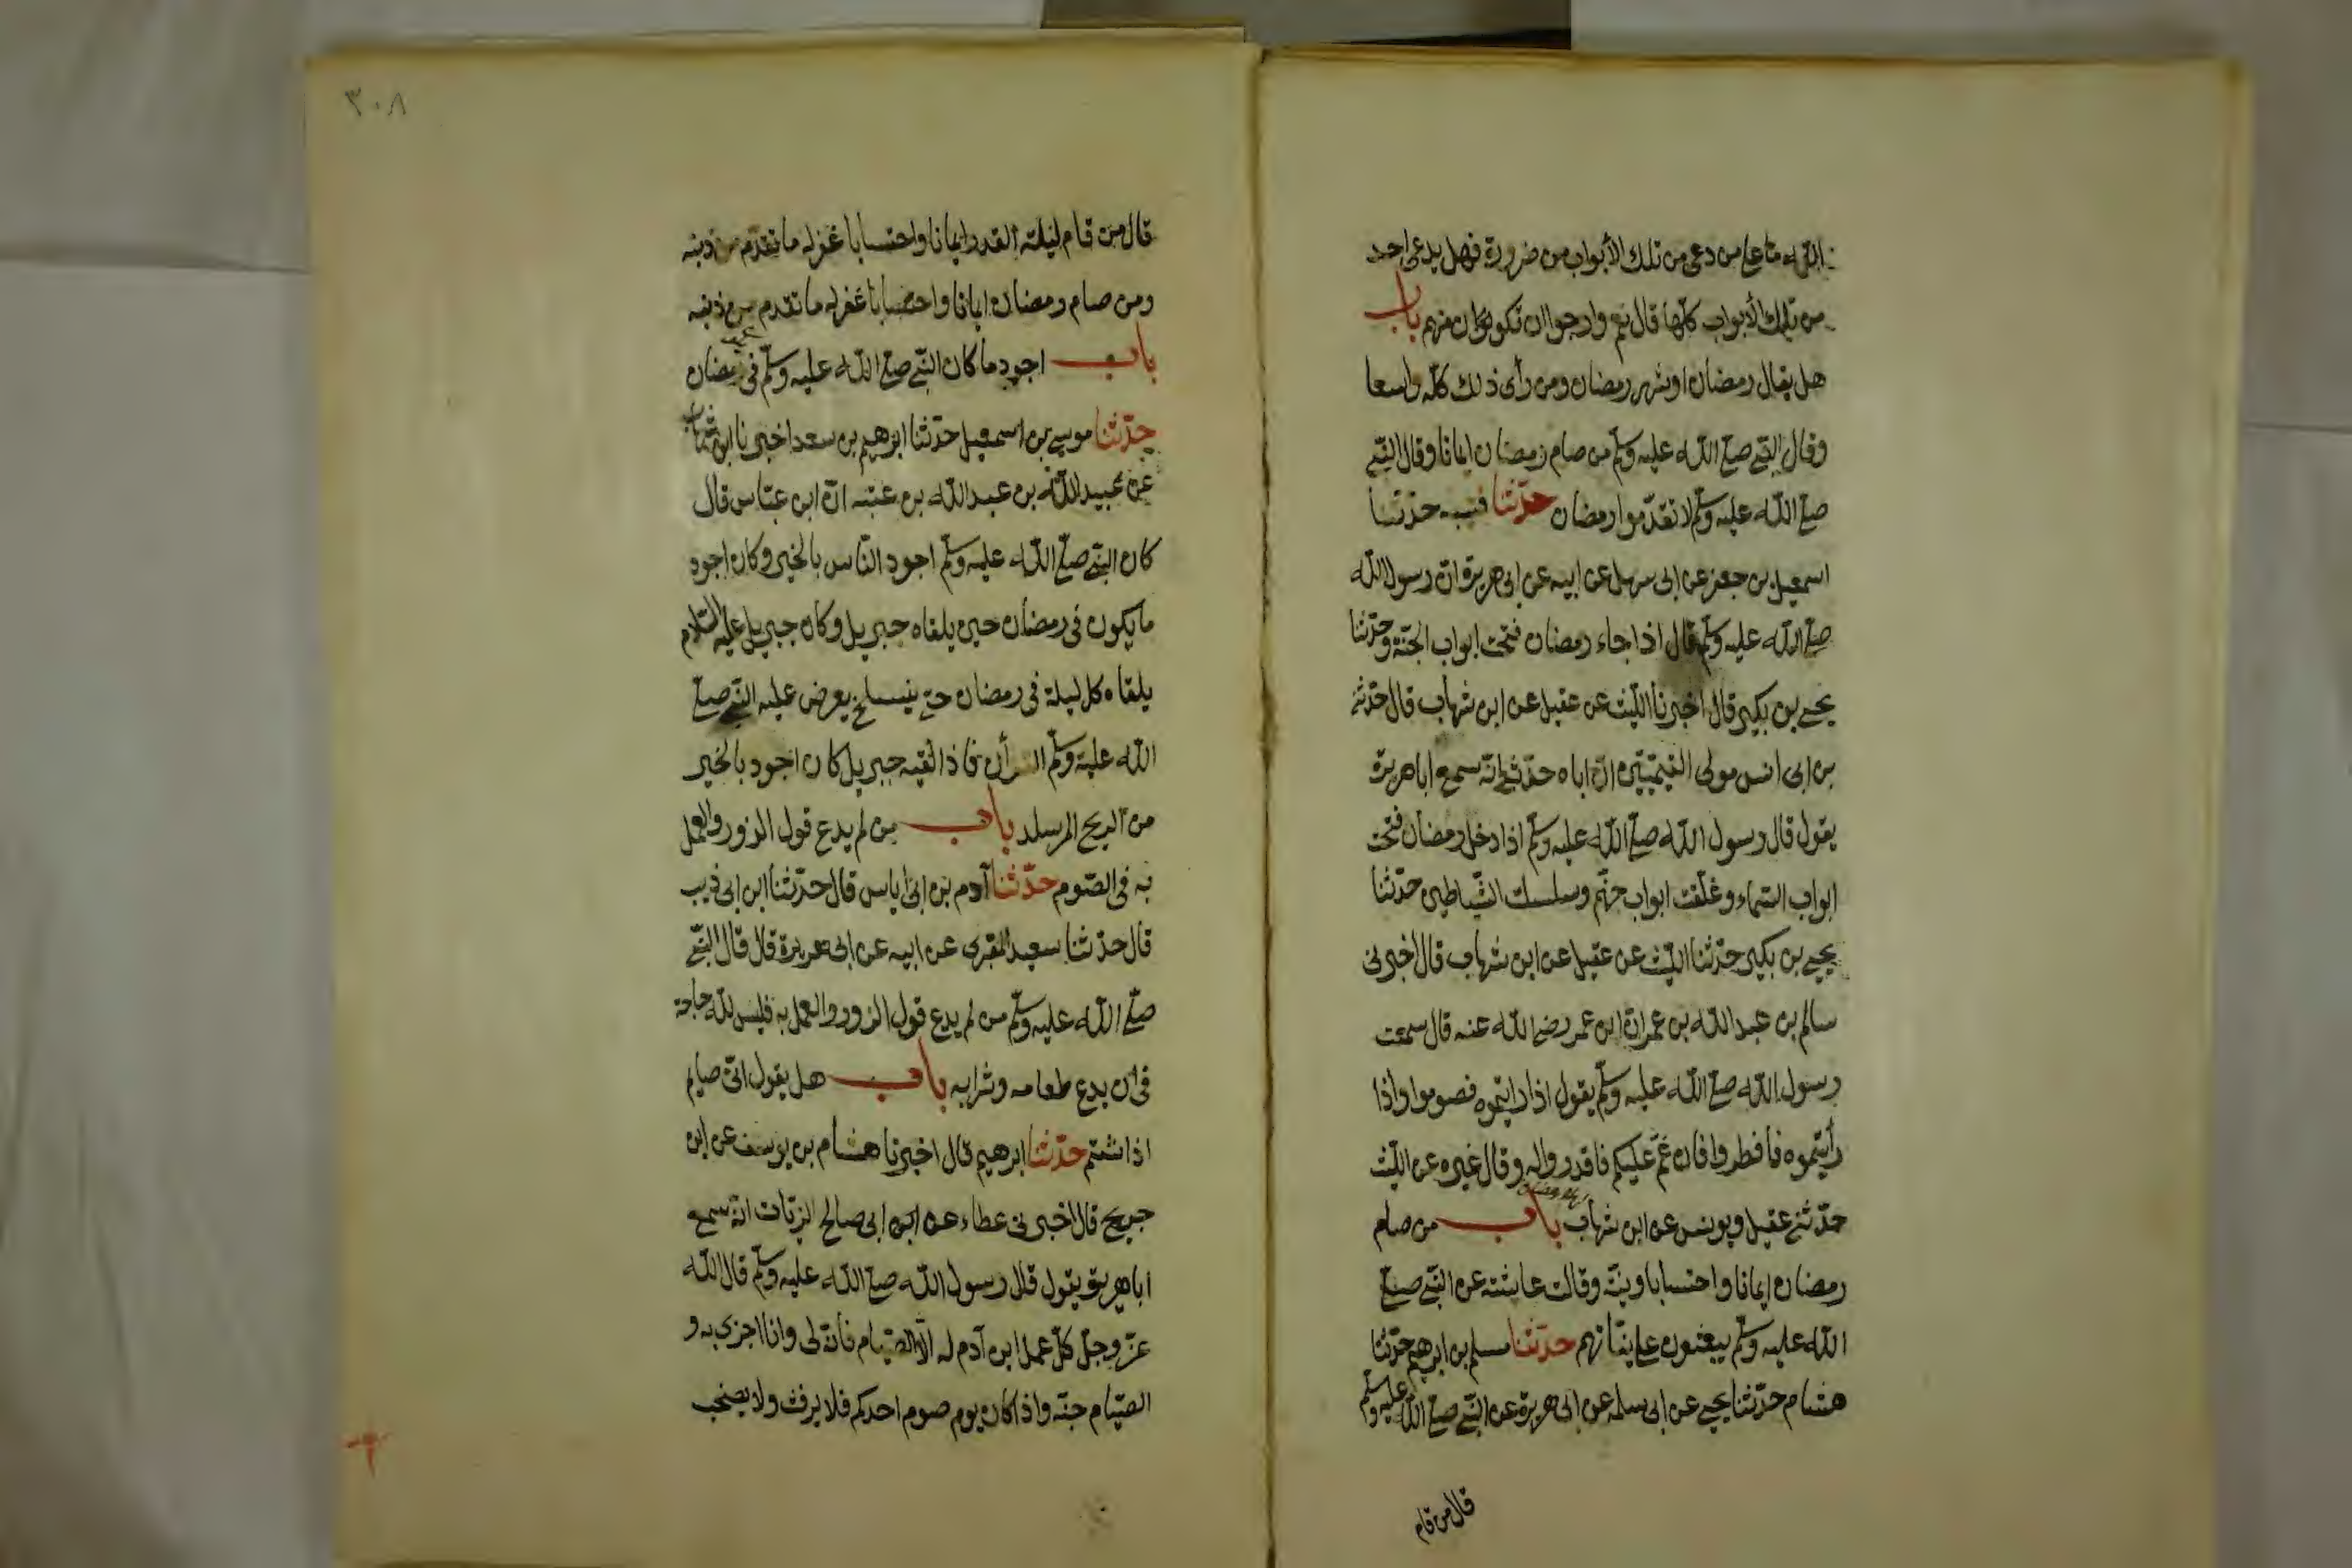 الله ما على من دعى من تلك الأبواب من ضرورة فهل يدعى احد
من تلك الأبواب كلها قال نعم وارجوا ان تكون منهم باب
هل يقال رمضان او شهر رمضان ومن رأى ذلك كلّه واسعا
وقال النبي صلى الله عليه وسلم من صام رمضان ايمانا وقال النبي
صلى الله عليه وسلم لا تقدّموا رمضان حدّثنا قتيبة حدّثنا
اسمعيل بن جعفر عن ابى سهل عن ابيه عن ابى هريرة ان رسول الله
صلى الله عليه وسلم قال اذا جاء رمضان فتحت ابواب الجنّة وحدّثنا
يحيى بن بكير قال اخبرنا الليث عن عقيل عن ابن شهاب قال حدثنى
بن ابى انس مولى التيميّين انّ اباه حدّثه انّه سمع ابا هريرة
يقول قال رسول الله صلى الله عليه وسلم اذا دخل رمضان فتحت
ابواب السّماء وغلّقت ابواب جهنّم وسلسلت الشّياطين حدّثنا
يحيى بن بكير حدّثنا الليث عن عقيل عن ابن شهاب قال اخبرنى
سالم بن عبد الله بن عمر انّ ابن عمر رضى الله عنه قال سمعت
رسول الله صلى الله عليه وسلم يقول اذا رايتموه فصوموا واذا
رأيتموه فافطروا فان غمّ عليكم فاقدروا له وقال غيره عن الليث
حدّثنى عقيل ويونس عن ابن شهاب لهلال رمضان باب من صام
رمضان ايمانا واحتسابا ونيّة وقالت عائشة عن النبي صلى
الله عليه وسلم يبعثون على نيّاتهم حدّثنا مسلم بن ابرهيم حدّثنا
هشام حدّثنا يحيى عن ابى سلمه عن ابى هريرة عن النبي صلى الله عليه وسلم
قال من قام
٣٠٨
قال من قام ليلة القدر ايمانا واحتسابا غفر له ما تقدّم من ذنبه
ومن صام رمضان ايمانا واحتسابا غفر له ما تقدم من ذنبه
باب اجود ما كان النّبي صلى الله عليه وسلم فى رمضان
حدّثنا موسى بن اسمعيل حدّثنا ابرهيم بن سعد اخبرنا ابن شهاب
عن عبيد الله بن عبد الله بن عتبه انّ ابن عبّاس قال
كان النبي صلى الله عليه وسلم اجود النّاس بالخير وكان اجود
ما يكون فى رمضان حين يلقاه جبريل وكان جبريل عليه السّلام
يلقاه كل ليلة فى رمضان حتى ينسلخ يعرض عليه النبي صلى
الله عليه وسلم القرأن فاذا لقيه جبريل كان اجود بالخير
من الريح المرسله باب من لم يدع قول الزور والعمل
به فى الصّوم حدّثنا آدم بن ابى اياس قال حدّثنا ابن ابى ذيب
قال حدّثنا سعيد المقبرى عن ابيه عن ابى هريرة قال قال النبي
صلّى الله عليه وسلم من لم يدع قول الزور والعمل به فليس لله حاجة
فى ان يدع طعامه وشرابه باب هل يقول انّى صايم
اذا شتم حدّثنا ابرهيم قال اخبرنا هشام بن يوسف عن ابن
جريج قال اخبرنى عطاء عن ابن ابى صالح الزيّات انّه سمع
ابا هريرة يقول قال رسول الله صلى الله عليه وسلم قال الله
عزّ وجلّ كلّ عمل ابن آدم له الّا الصّيام فانّه لى وانا اجزى به و
الصّيام جنّة واذا كان يوم صوم احدكم فلا يرفث ولا يصخب